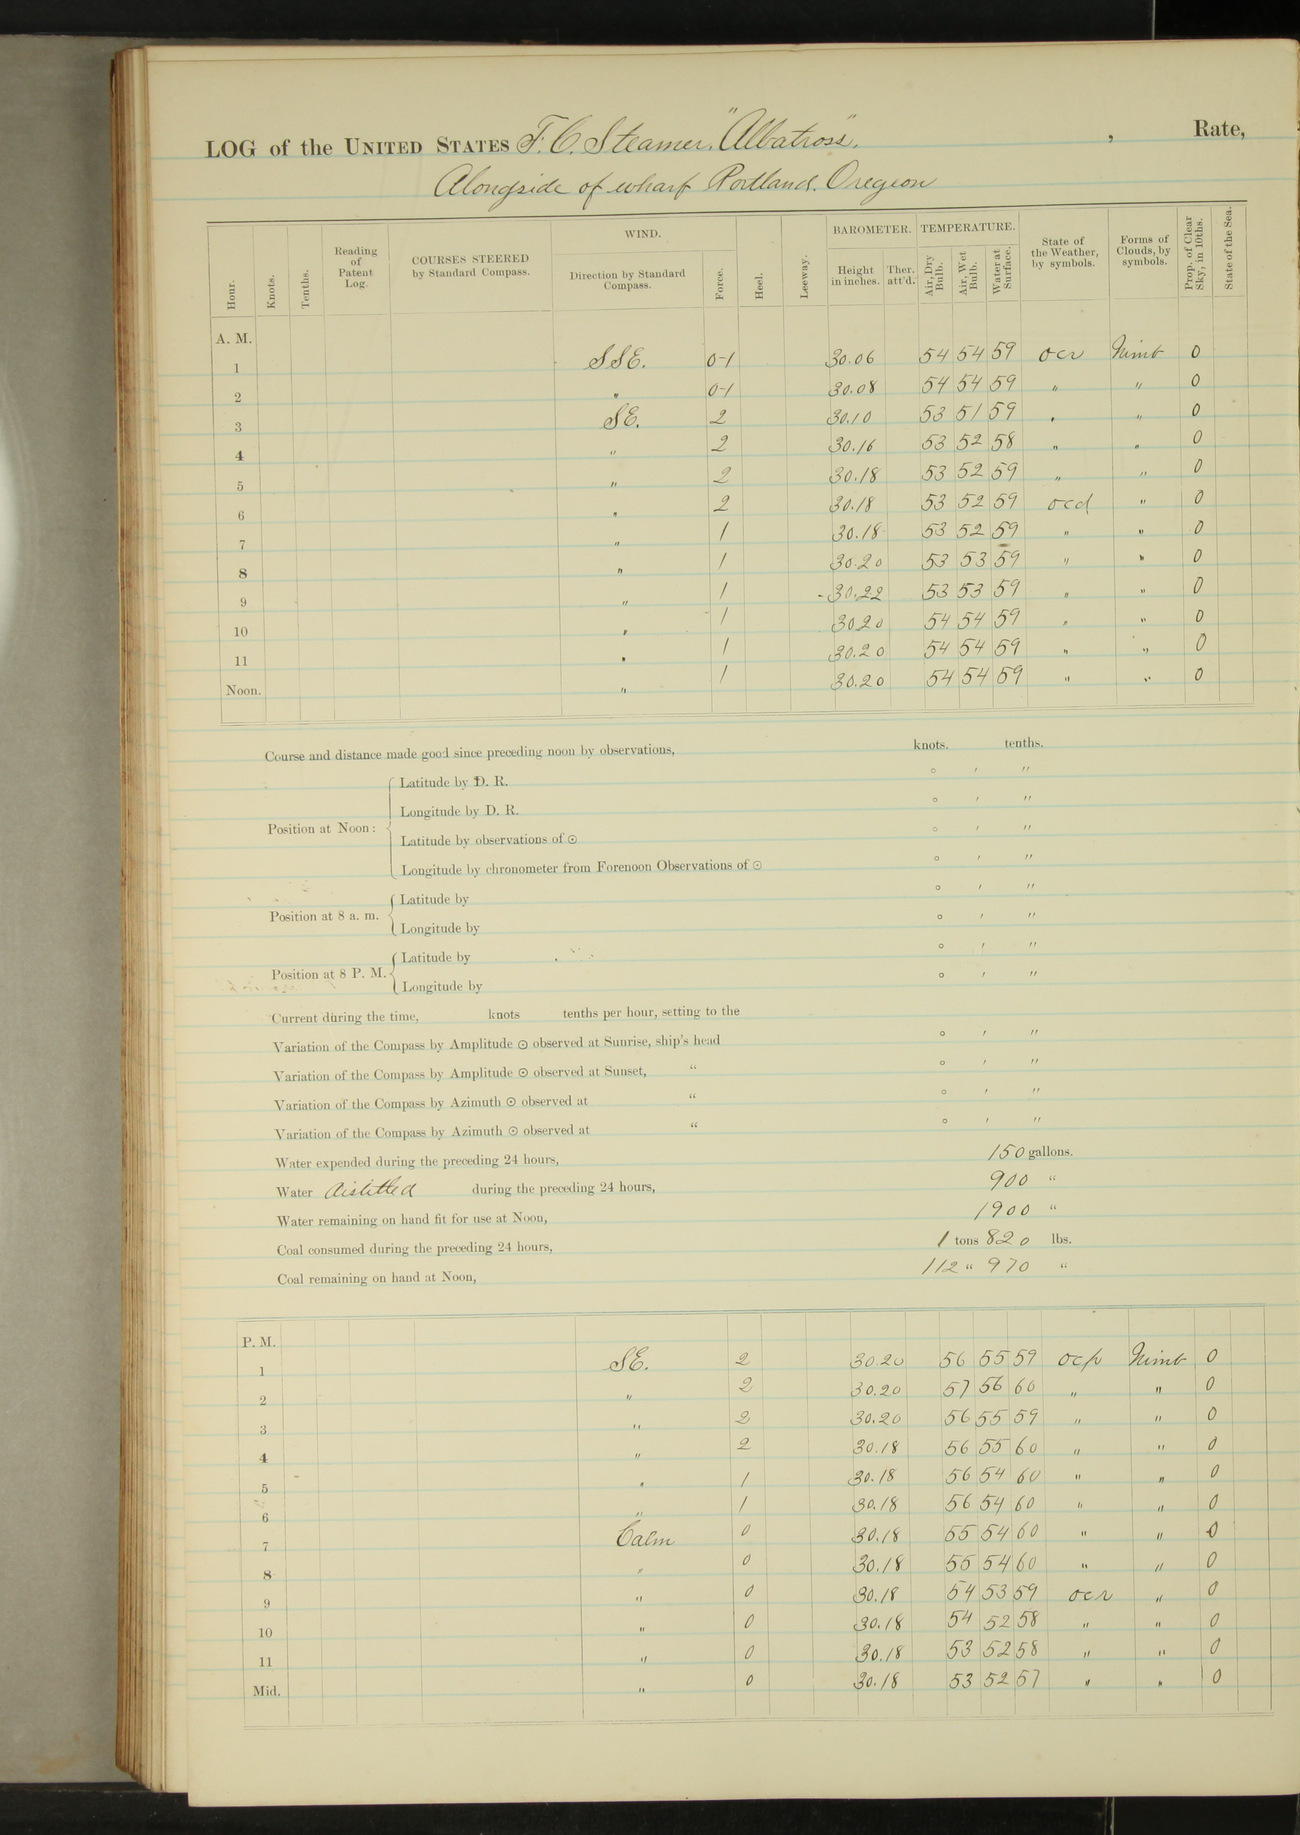 LOG of the UNITED STATES F. C. Steamer, "Albatross". , Rate,
Alongside of wharf Portland. Oregeon
Hour. Knots. Tenths. Reading of Patent Log. COURSES STEERED by Standard Compass. WIND. Direction by Standard Compass. Force. Heel. Leeway. BAROMETER. Height in inches. Ther. att'd. TEMPERATURE. Air, Dry Bulb. Air, Wet Bulb. Water at Surface. State of the Weather, by symbols. Forms of Clouds, by symbols. Prop. of Clear Sky, in 10ths. State of the Sea.
A. M.
1 SSE. 0-1 30.06 54 54 59 ocr Nimb 0
2 " 0-1 30.08 54 54 59 " " 0
3 SE. 2 30.10 53 51 59 " " 0
4 " 2 30.16 53 52 58 " " 0
5 " 2 30.18 53 52 59 " " 0
6 " 2 30.18 53 52 59 ocd " 0
7 " 1 30.18 53 52 59 " " 0
8 " 1 30.20 53 53 59 " " 0
9 " 1 30.22 53 53 59 " " 0
10 " 1 30.20 54 54 59 " " 0
11 " 1 30.20 54 54 59 " " 0
Noon. " 1 30.20 54 54 59 " " 0
Course and distance made good since preceding noon by observations, knots. tenths.
Position at Noon:
Latitude by D. R. ° ' "
Longitude by D. R. ° ' "
Latitude by observations of ☉ ° ' "
Longitude by chronometer from Forenoon Observations of ☉ ° ' "
Position at 8 a. m.
Latitude by ° ' "
Longitude by ° ' "
Position at 8 P. M.
Latitude by ° ' "
Longitude by ° ' "
Current during the time, knots tenths per hour, setting to the
Variation of the Compass by Amplitude ☉ observed at Sunrise, ship's head ° ' "
Variation of the Compass by Amplitude ☉ observed at Sunset, “ ° ' "
Variation of the Compass by Azimuth ☉ observed at “ ° ' "
Variation of the Compass by Azimuth ☉ observed at “ ° ' "
Water expended during the preceding 24 hours, 150 gallons.
Water distilled during the preceding 24 hours, 900 “
Water remaining on hand fit for use at Noon, 1900 “
Coal consumed during the preceding 24 hours, 1 tons 820 lbs.
Coal remaining on hand at Noon, 112 “ 970 “
P. M.
1 SE. 2 30.20 56 55 59 ocp Nimb 0
2 " 2 30.20 57 56 60 " " 0
3 " 2 30.20 56 55 59 " " 0
4 " 2 30.18 56 55 60 " " 0
5 " 1 30.18 56 54 60 " " 0
6 " 1 30.18 56 54 60 " " 0
7 Calm 0 30.18 55 54 60 " " 0
8 " 0 30.18 55 54 60 " " 0
9 " 0 30.18 54 53 59 ocr " 0
10 " 0 30.18 54 52 58 " " 0
11 " 0 30.18 53 52 58 " " 0
Mid. " 0 30.18 53 52 57 " " 0